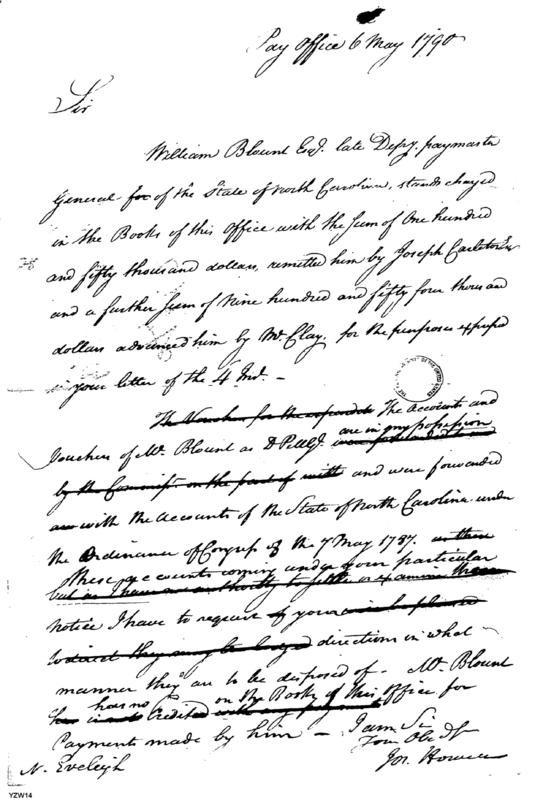 Pay Office 6 May 1790
Sir
William Blount Esqr. late Depy. paymaster
General for of the State of North Carolina, stands charged
in the Books of this Office with the Sum of One hundred
and fifty thousand dollars, remitted him by Joseph Carleton Esqr
and a further Sum of Nine hundred and fifty four thousand
dollars advanced him by Mr Clay, for the purposes expressed
in your letter of the 4 Inst. –
The Vouchers for the expendit The Accounts and
are in my possession
Vouchers of Mr. Blount as D P M Gl
by the Commissr. on the part of and were forwarded
with the Accounts of the State of North Carolina under
the Ordinance of Congress of the 7 May 1787.
These accounts coming under your particular
but as I have no authority to settle or examine them
notice I have to request of your
to direct they may be lodged directions in what
manner they are to be disposed of – Mr. Blount
has no on the Books of this Office for
Credited with any payment
Payments made by him – I am Sir
Your Obt. St
N. Eveleigh
Jos. Howell
YZW14